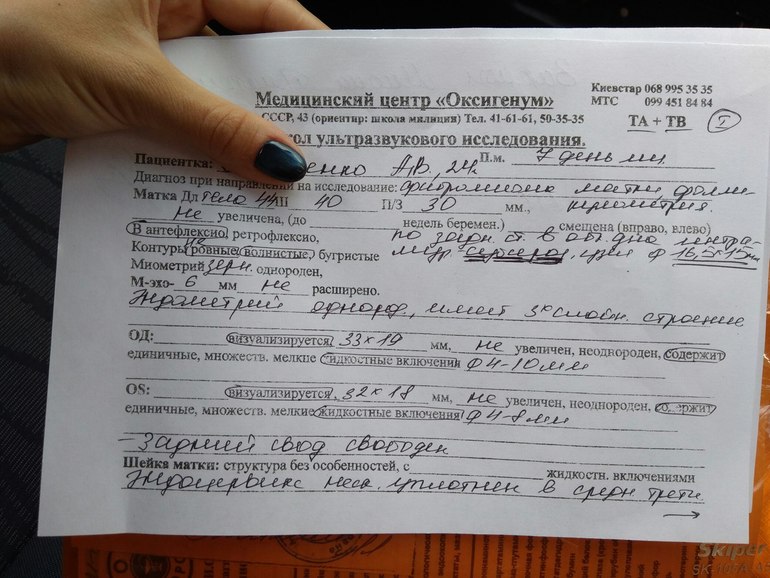 Киевстар 068 995 35 35
Медицинский центр «Оксигенум» МТС 099 451 84 84
СССР, 43 (ориентир: школа милиции) Тел. 41-61-61, 50-35-35 ТА + ТВ I
кол ультразвукового исследования.
Пациентка: енко А.В, 24. П.м. 7 день мц
Диагноз при направлении на исследование: фибромиома матки
Матка Дл тело 44 Ш 40 П/З 30 мм.,
не увеличена, (до недель беремен.) смещена (вправо, влево)
В антефлексио ретрофлексио, по задн. ст в обл. дна интра
Контуры не ровные волнистые, бугристые ф 16,5х15мм
Миометрий зерн. однороден,
М-эхо- 6 мм не расширено.
Эндометрий однород, имеет 3х слойн. строение
ОД: визуализируется 33х19 мм, не увеличен, неоднороден, содержит
единичные, множеств. мелкие жидкостные включения ф 4-10мм
OS: визуализируется, 32х18 мм, не увеличен, неоднороден, содержит
единичные, множеств. мелкие жидкостные включения ф 4-8мм
- Задний свод свободен
Шейка матки: структура без особенностей, с жидкостн. включениями
Эндоцервикс неск. уплотнен в средн трети
→
Skiper